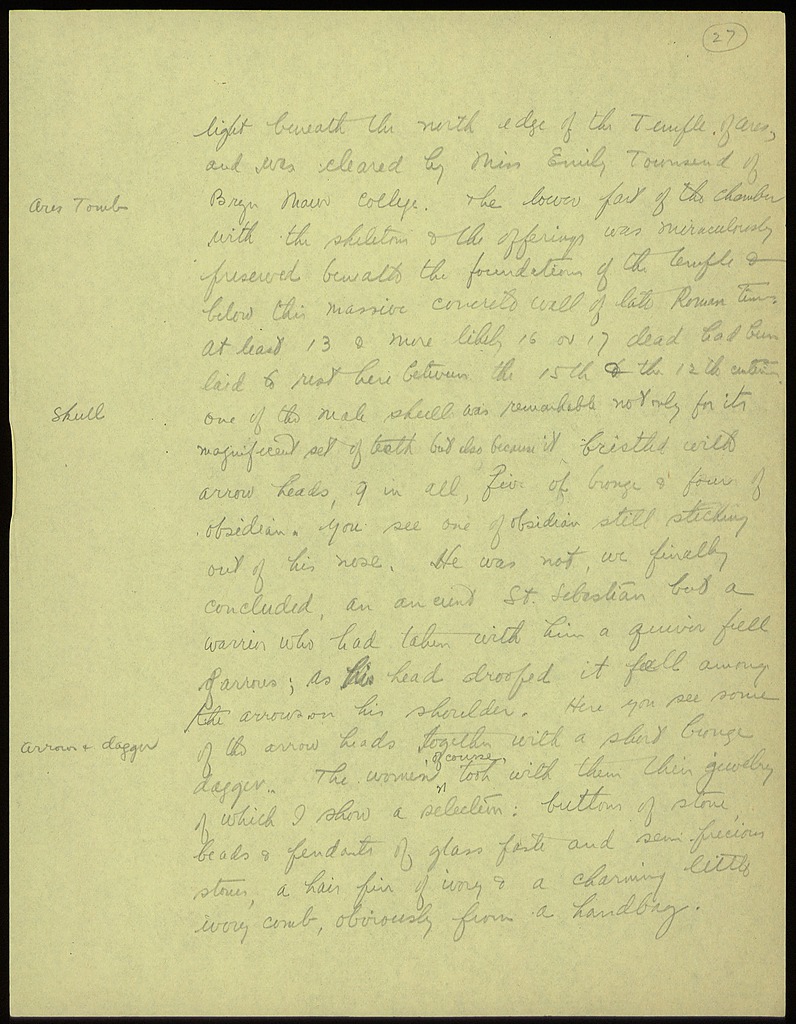 27
light beneath the north edge of the Temple of Ares,
and was cleared by Miss Emily Townsend of
Ares Tomb
Bryn Mawr College. The lower part of the chamber
with the skeletons & the offerings was miraculously
preserved beneath the foundations of the temple &
below this massive concrete wall of late Roman times.
At least 13 & more likely 16 or 17 dead had been
laid to rest here between the 15th & the 12th centuries.
Skull
one of the male skull was remarkable not only for its
magnificent set of teeth but also because it bristled with
arrow heads, 9 in all, five of bronze & four of
obsidian. You see one of obsidian still sticking
out of his nose. He was not, we finally
concluded, an ancient St. Sebastian but a
warrior who had taken with him a quiver full
of arrows; as his head drooped it fell among
the arrows on his shoulder. Here you see some
Arrows & dagger
of the arrow heads together with a short bronze
dagger. The women of course took with them their jewelry
of which I show a selection: buttons of stone
beads & pendants of glass paste and semi-precious
stones, a hair pin of ivory & a charming little
ivory comb, obviously from a handbag.